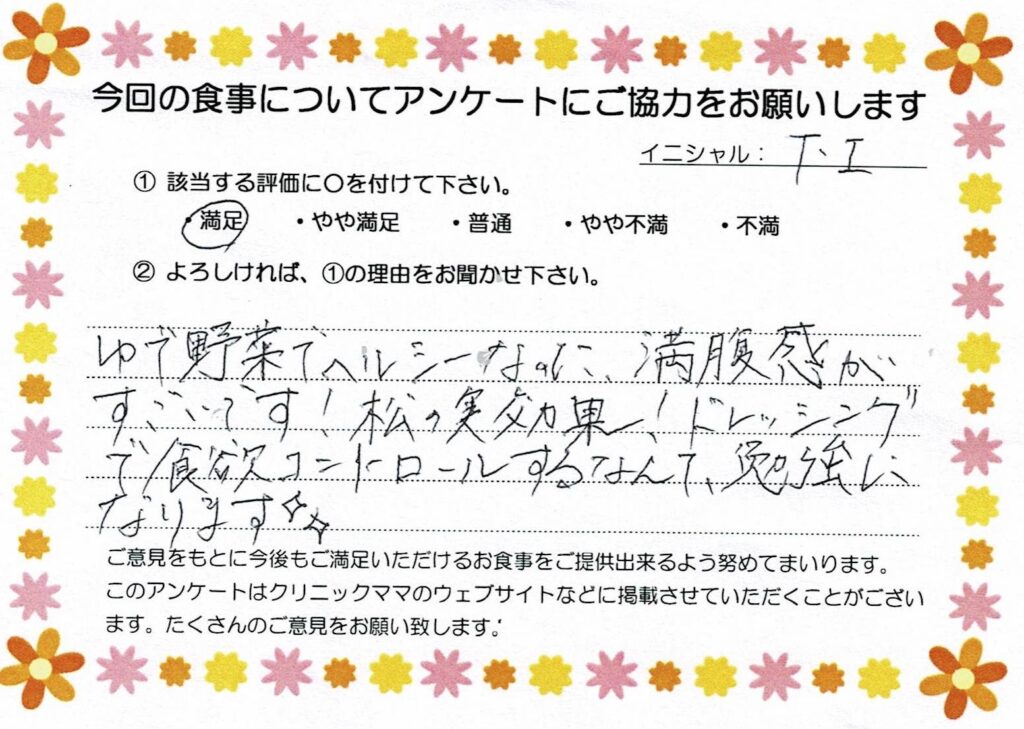 今回の食事についてアンケートにご協力をお願いします
イニシャル： T、I
① 該当する評価に〇を付けて下さい。
・満足 ・やや満足 ・普通 ・やや不満 ・不満
② よろしければ、①の理由をお聞かせ下さい。
ゆで野菜でヘルシーなのに、満腹感が
すごいです！松の実効果〜！ドレッシング
で食欲コントロールするなんて、勉強に
なります
ご意見をもとに今後もご満足いただけるお食事をご提供出来るよう努めてまいります。
このアンケートはクリニックママのウェブサイトなどに掲載させていただくことがござい
ます。たくさんのご意見をお願い致します。